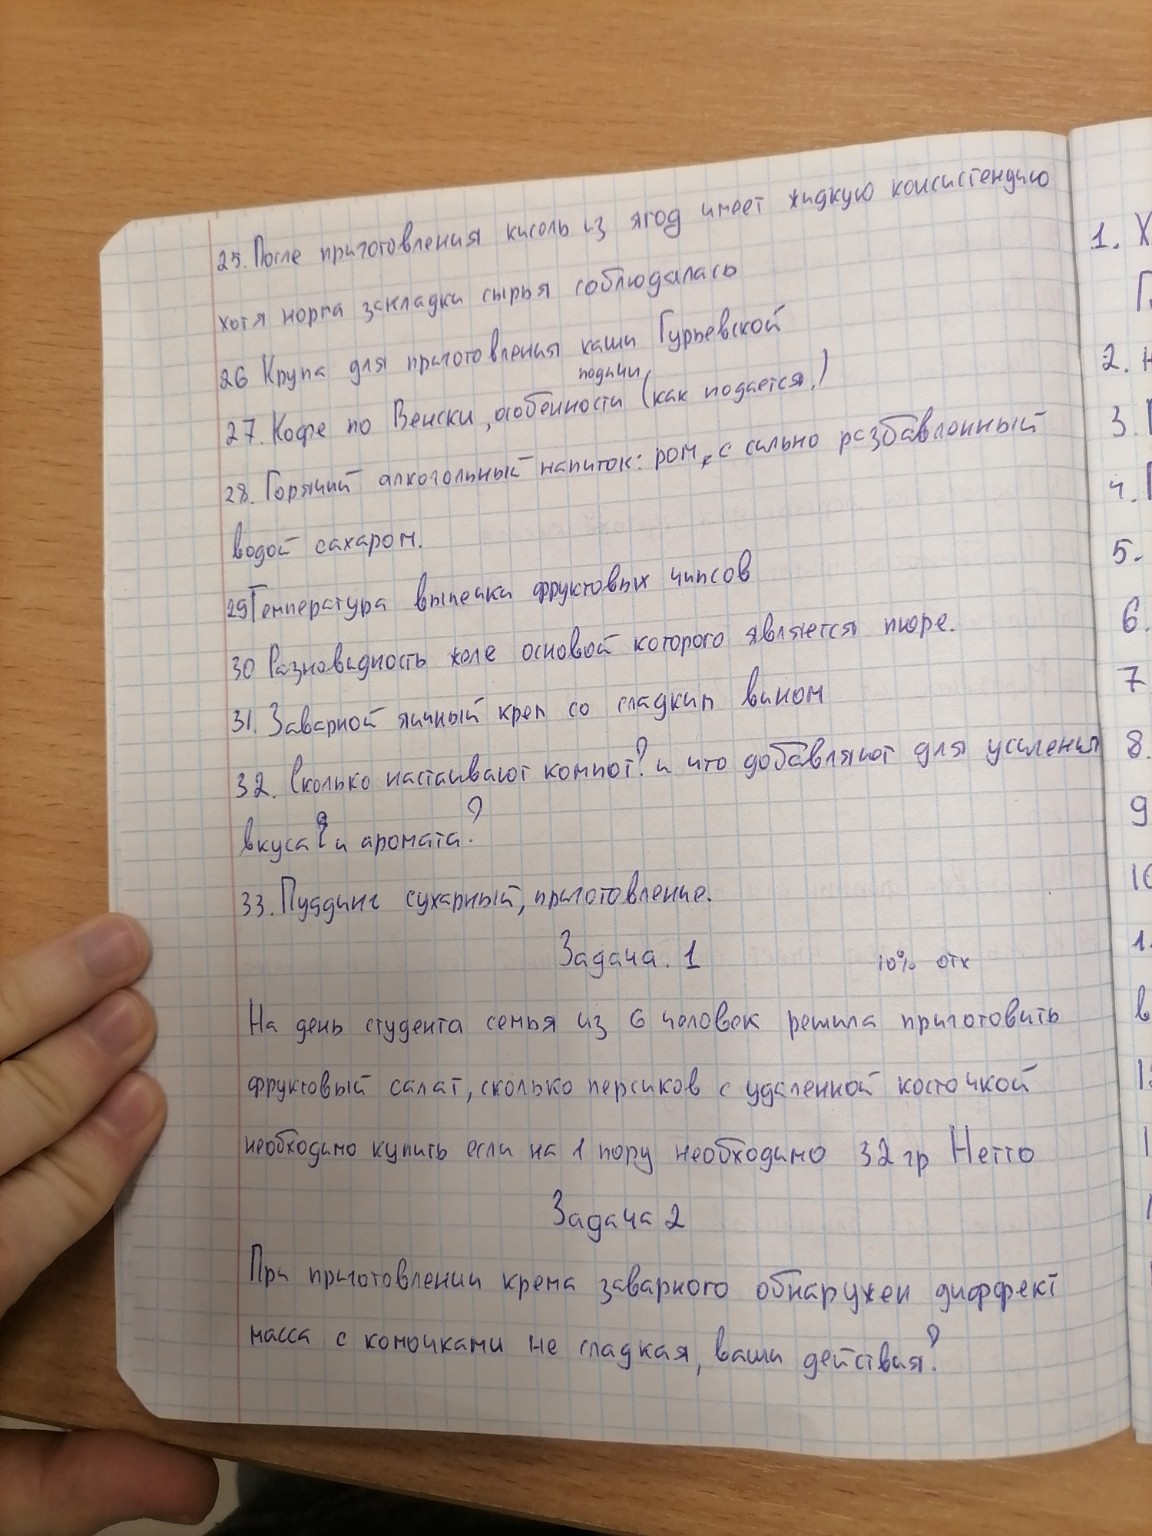 25. После приготовления кисель из ягод имеет жидкую консистенцию
хотя норма закладки сырья соблюдалась
26 Крупа для приготовления каши Гурьевской
подачи
27. Кофе по Венски, особенности (как подается,)
28. Горячий алкогольный напиток: ром, с сильно разбавленный
водой сахаром.
29 Температура выпечки фруктовых чипсов
30 Разновидность желе основой которого является пюре.
31. Заварной яичный крем со сладким вином
32. Сколько настаивают компот? и что добавляют для усиления
вкуса? и аромата?
33. Пуддинг сухарный, приготовление.
Задача. 1
10% отх
На день студента семья из 6 человек решила приготовить
фруктовый салат, сколько персиков с удаленной косточкой
необходимо купить если на 1 порц необходимо 32 гр Нетто
Задача 2
При приготовлении крема заварного обнаружен диффект
масса с комочками не гладкая, ваши действия?
1. Х
2. Н
3.
4.
5.
6.
7
8.
9
10